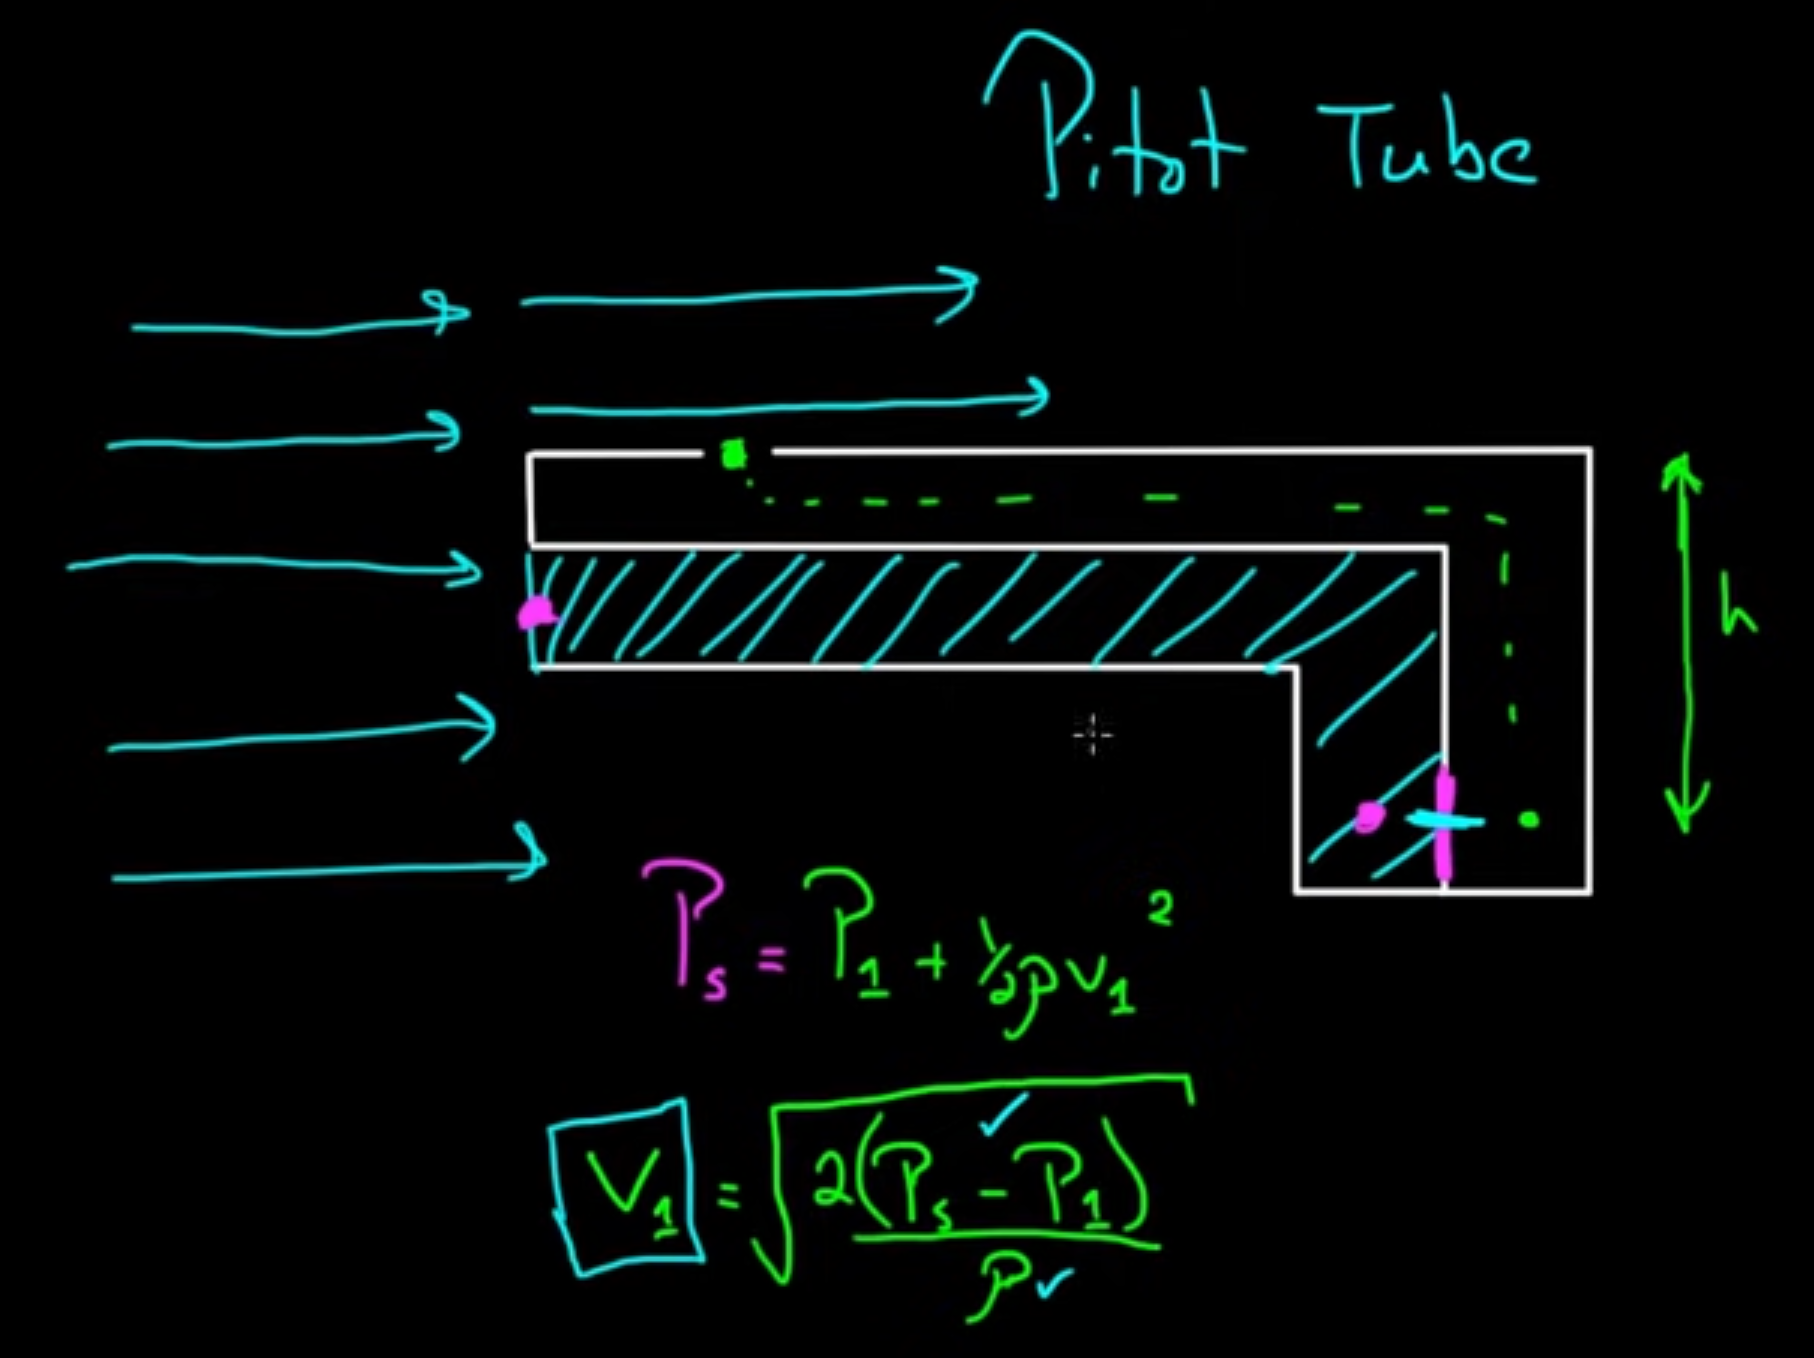 Pitot Tube
h
Ps = P1 + 1/2 ρ v1²
V1 = √(2(Ps - P1)/ρ)